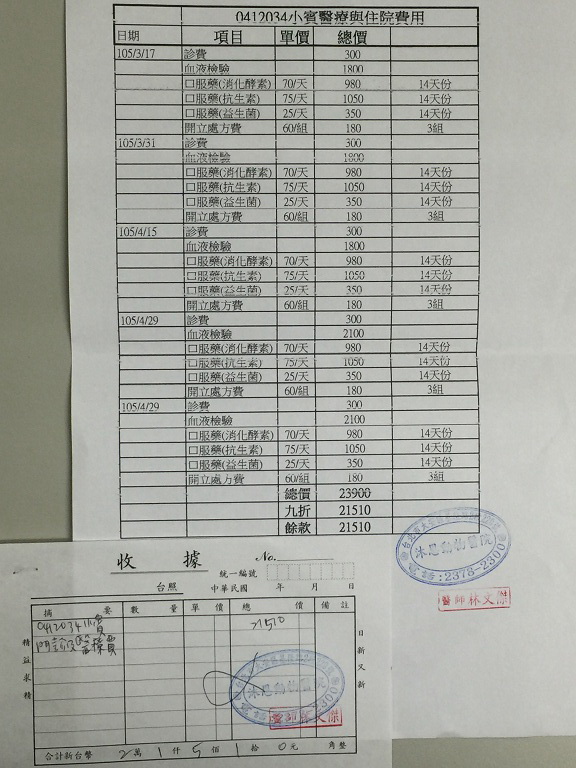 0412034小賓醫療與住院費用
日期 項目 單價 總價
105/3/17 診費 300
血液檢驗 1800
口服藥(消化酵素) 70/天 980 14天份
口服藥(抗生素) 75/天 1050 14天份
口服藥(益生菌) 25/天 350 14天份
開立處方費 60/組 180 3組
105/3/31 診費 300
血液檢驗 1800
口服藥(消化酵素) 70/天 980 14天份
口服藥(抗生素) 75/天 1050 14天份
口服藥(益生菌) 25/天 350 14天份
開立處方費 60/組 180 3組
105/4/15 診費 300
血液檢驗 1800
口服藥(消化酵素) 70/天 980 14天份
口服藥(抗生素) 75/天 1050 14天份
口服藥(益生菌) 25/天 350 14天份
開立處方費 60/組 180 3組
105/4/29 診費 300
血液檢驗 2100
口服藥(消化酵素) 70/天 980 14天份
口服藥(抗生素) 75/天 1050 14天份
口服藥(益生菌) 25/天 350 14天份
開立處方費 60/組 180 3組
105/4/29 診費 300
血液檢驗 2100
口服藥(消化酵素) 70/天 980 14天份
口服藥(抗生素) 75/天 1050 14天份
口服藥(益生菌) 25/天 350 14天份
開立處方費 60/組 180 3組
總價 23900
九折 21510
餘款 21510
沐恩動物醫院
電話:2378-2300
醫師林文傑
收據 No.
統一編號
台照 中華民國 年 月 日
摘要 數量 單價 總價 備註
0412034小賓 21510
門診及醫療費
精益求精
日新又新
沐恩動物醫院
醫師林文傑
合計新台幣 2萬1仟5佰1拾0元 角整